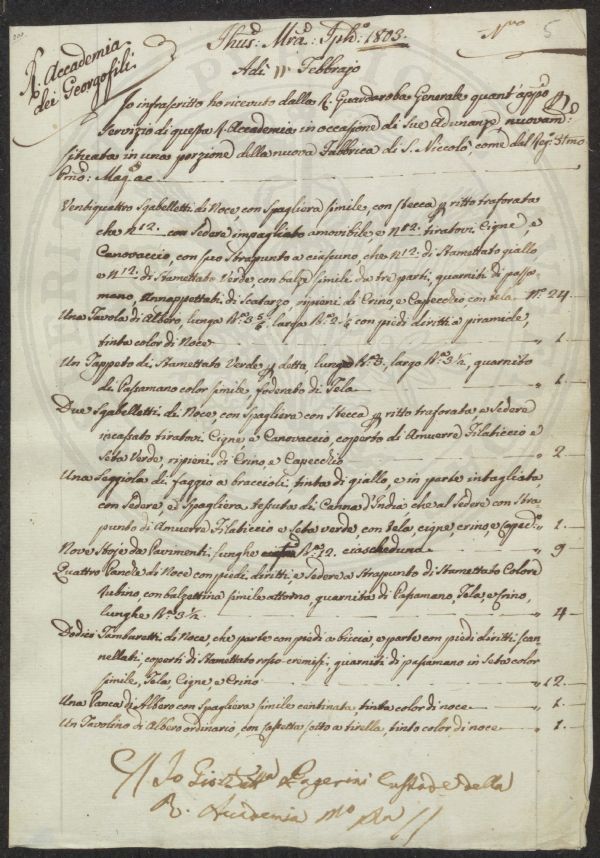 R. Accademia
dei Georgofili
Jhus: Mra: Jph: 1803.
Nro 5
Adì 11 Febbrajo
Io infrascritto ho ricevuto dalla R. Guardaroba Generale quant' app.
Servizio di questa R. Accademia in occasione di Sue Adunanze, nuovam:
Situata in una porzione della nuova Fabbrica di S. Niccolò, come dal Reg.
Prño: Maq. ac
Ventiquattro Sgabelletti di Noce con Spagliera simile, con stecca ritto traforata
che n.° 12. con Sedere impagliato amovibile, e n.° 12. tiratovi Cigne, e
Canovaccio, con suo Strapunto a ciascuno, che n.° 12. di Stamettato giallo,
e n.° 12. di Stamettato Verde, con balze simile da tre parti, guarniti di passa-
mano, annappettati di Scatarzo, ripieni di Crino, e Capecchio con tela N.° 24.
Una Tavola di Albero, lunga 3 5/6, larga con piedi diritti a piramide,
tinto color di Noce 1.
Un Tappeto di Stamettato Verde detta, lungo largo 3 1/2, guarnito
di Passamano color simile, foderato di Tela 1.
Due Sgabelletti di Noce, con Spagliera con Stecca ritto traforata, e Sedere
incassato tiratovi Cigne, e Canovaccio, coperto di Amuerre Filaticcio e
Seta Verde, ripieni di Crino e Capecchio 2
Una Seggiola di faggio a braccioli, tinta di giallo, e in parte intagliata
con Sedere, e Spagliera tessuta di Canna d'India, che al sedere con Stra-
punto di Amuerre Filaticcio e Seta verde, con tela, cigne, crino, e capec. 1.
Nove Stoje da Pavimenti lunghe 12. ciascheduna 9
Quattro Panche di Noce con piedi diritti, e Sedere a Strapunto di Stamettato Colore
rubino, con balzettina simile attorno, guarnita di Passamano, Tela, e Crino,
lunghe 3 1/2 4
Dodici Tamburetti di Noce, che parte con piedi a biscia, e parte con piedi diritti scan-
nellati, coperti di Stamettato rosso cremisi, guarniti di passamano in Seta color
simile, Tela, Cigne e Crino 12
Una Panca di Albero con Spagliera simile centinata, tinto color di noce 1.
Un Tavolino di Albero ordinario, con cassetta sotto a tirella, tinto color di noce 1.
Io Pagerini Custode della
R. Accademia